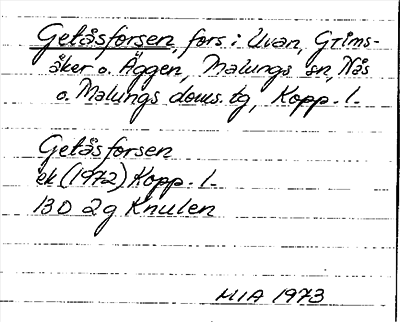 Getåsforsen, fors. i Uvan, Gríms-
åker o. Äggen, Malungs sn, Nås
o. Malungs doms. tg, Kopp. l.
Getåsforsen
ek (1972) Kopp. l.
13D 2g Knulen
MIA 1973